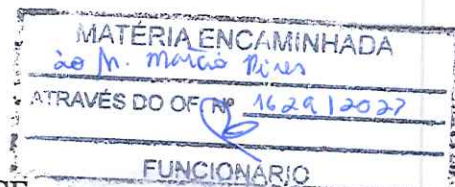 MATÉRIA ENCAMINHADA
ao Sr. Marcio Pires
ATRAVÉS DO OF. Nº 1629/2027
FUNCIONÁRIO